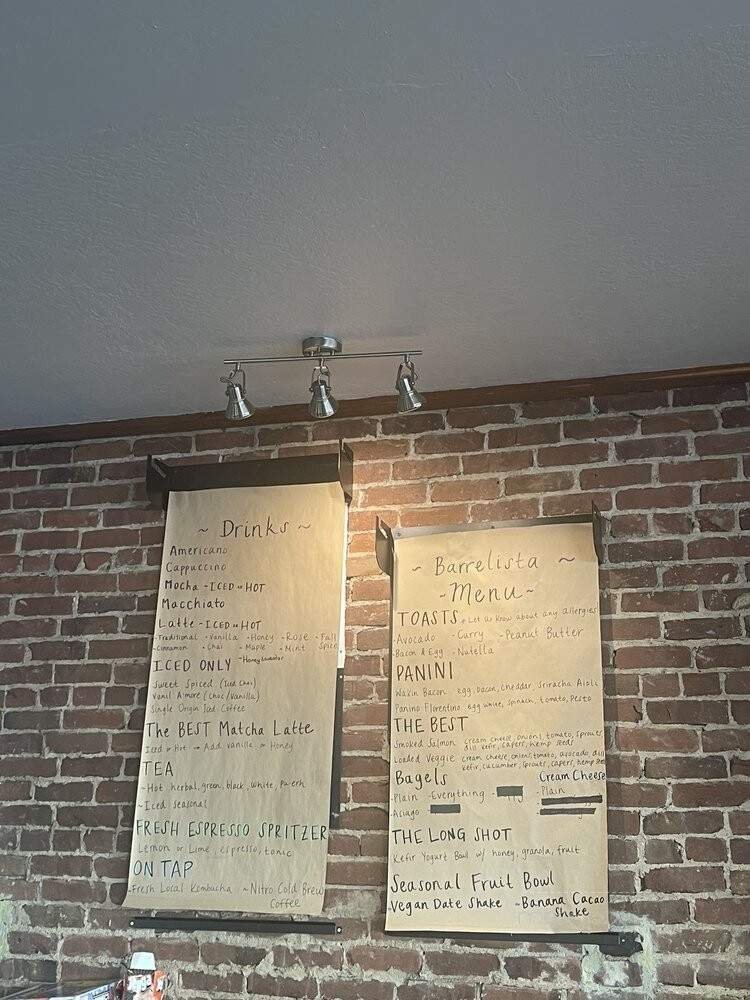 ~ Drinks ~
Americano
Cappuccino
Mocha - ICED or HOT
Macchiato
Latte - ICED or HOT
-Traditional -Vanilla -Honey -Rose -Fall Spice
-Cinnamon -Chai -Maple -Mint
-Honey Lavender
ICED ONLY
Sweet Spiced (Iced Chai)
Vanil A'more (choc/vanilla)
Single Origin Iced Coffee
The BEST Matcha Latte
Iced or Hot → Add vanilla or Honey
TEA
~Hot herbal, green, black, white, pu-erh
~Iced seasonal
FRESH ESPRESSO SPRITZER
Lemon or Lime, espresso, tonic
ON TAP
-Fresh Local Kombucha ~Nitro Cold Brew
Coffee
~ Barrelista ~
-Menu-
TOASTS * Let us know about any allergies
-Avocado -Curry -Peanut Butter
-Bacon & Egg -Nutella
PANINI
Wakin Bacon egg, bacon, cheddar, Sriracha Aioli
Panino Florentino egg white, spinach, tomato, Pesto
THE BEST
Smoked Salmon cream cheese, onions, tomato, sprouts
dill kefir, capers, hemp seeds
Loaded Veggie cream cheese, onions, tomato, avocado, dill
kefir, cucumber, sprouts, capers, hemp seeds
Bagels
-Plain -Everything
-Asiago
Cream Cheese
-Plain
THE LONG SHOT
Kefir Yogurt Bowl w/ honey, granola, fruit
Seasonal Fruit Bowl
-Vegan Date Shake -Banana Cacao
Shake